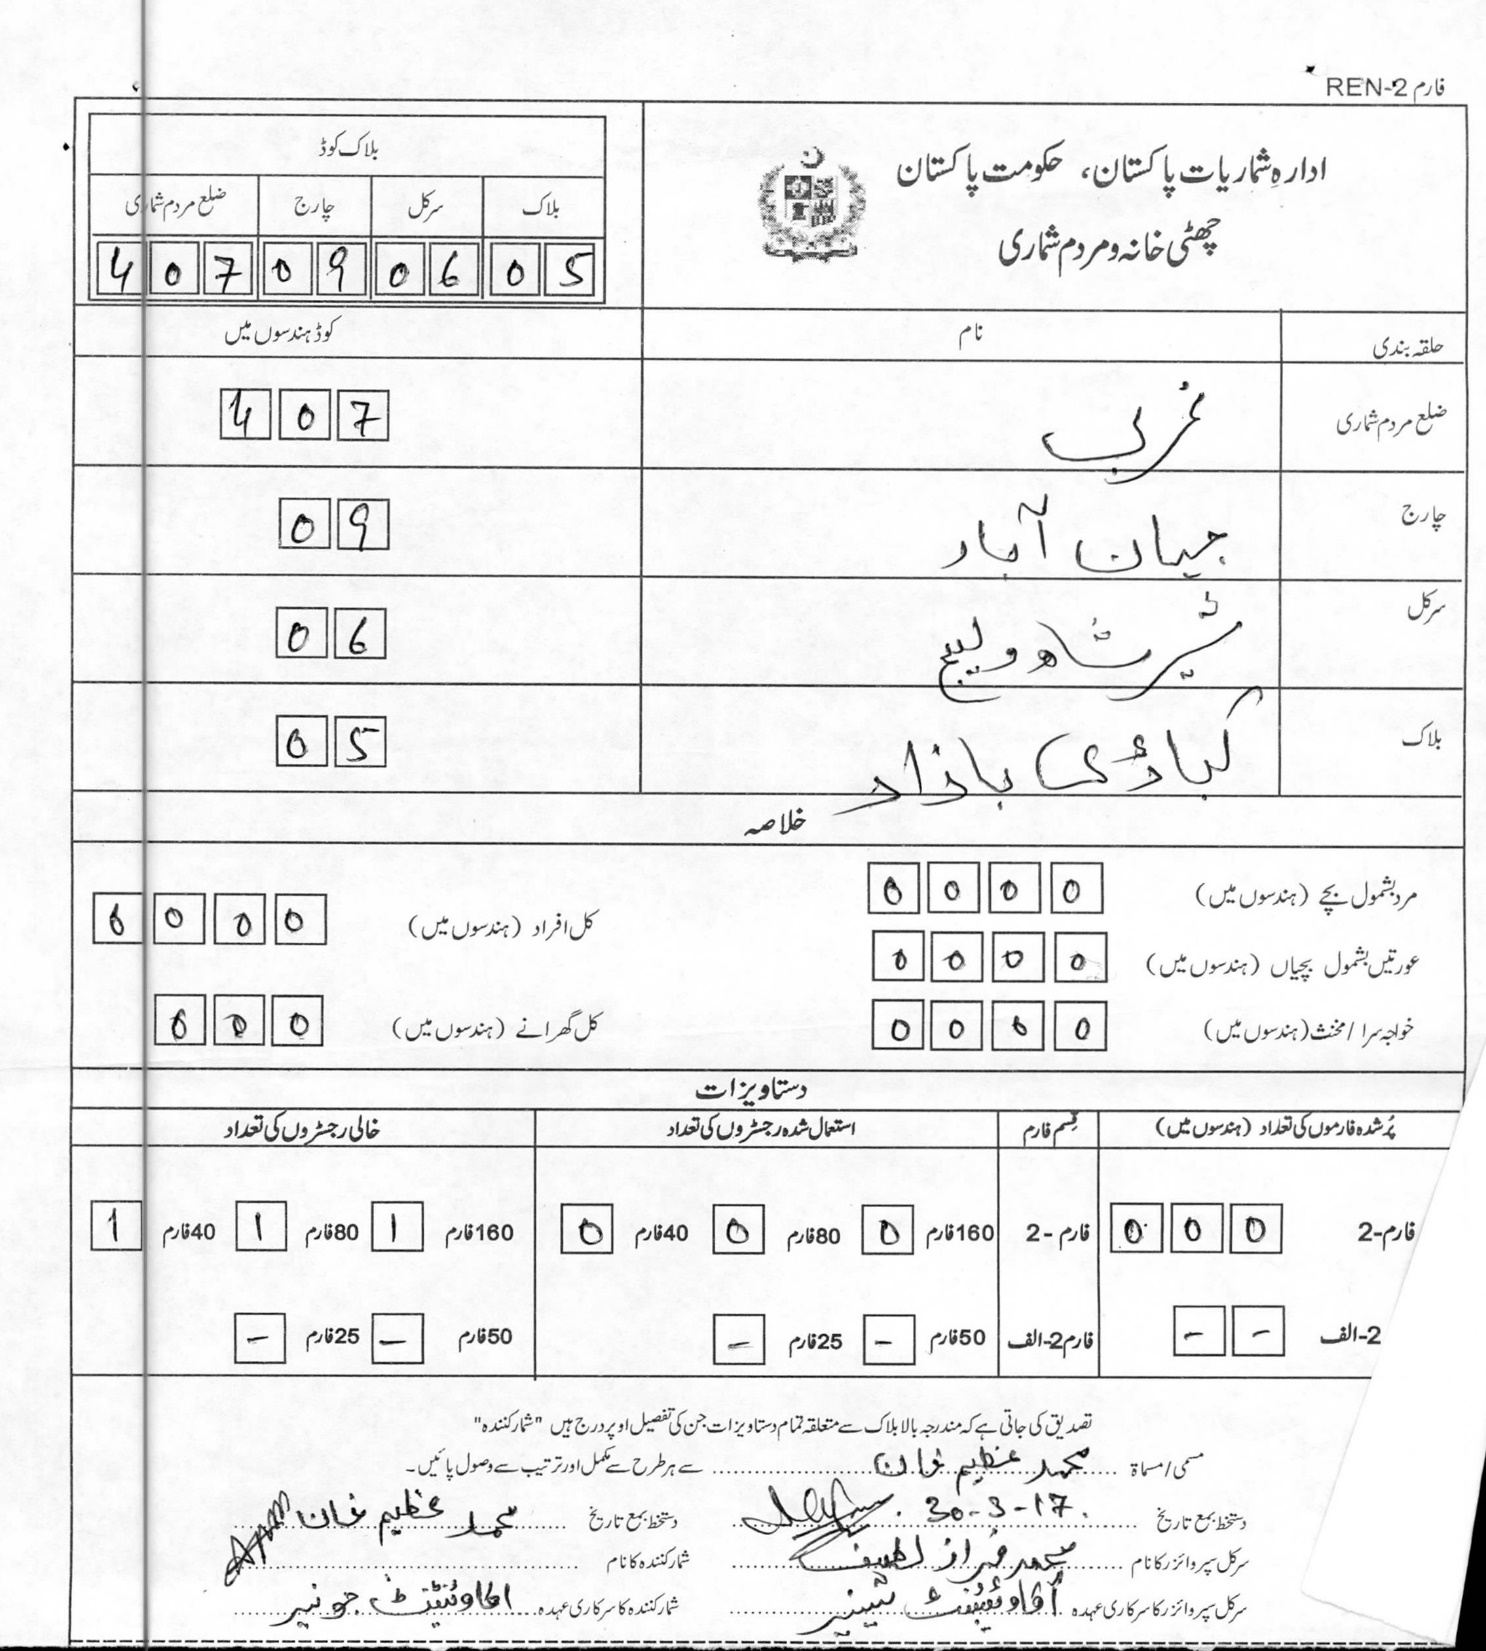 فارم REN-2
ادارہ شماریات پاکستان، حکومت پاکستان
چھٹی خانہ و مردم شماری
بلاک کوڈ
ضلع مردم شماری چارج سرکل بلاک
4 0 7 0 9 0 6 0 5
حلقہ بندی نام کوڈ ہندسوں میں
ضلع مردم شماری غربی 4 0 7
چارج جہان آباد 0 9
سرکل شیرشاہ ولیج 0 6
بلاک کباڑی بازار 0 5
خلاصہ
مرد بشمول بچے (ہندسوں میں) 0 0 0 0
کل افراد (ہندسوں میں) 0 0 0 0
عورتیں بشمول بچیاں (ہندسوں میں) 0 0 0 0
خواجہ سرا / مخنث (ہندسوں میں) 0 0 0 0
کل گھرانے (ہندسوں میں) 0 0 0
دستاویزات
پُر شدہ فارموں کی تعداد (ہندسوں میں) قسم فارم استعمال شدہ رجسٹروں کی تعداد خالی رجسٹروں کی تعداد
فارم-2 0 0 0 فارم - 2 160 فارم 0 80 فارم 0 40 فارم 0 160 فارم 1 80 فارم 1 40 فارم 1
2-الف - - فارم 2-الف 50 فارم - 25 فارم - 50 فارم - 25 فارم -
تصدیق کی جاتی ہے کہ مندرجہ بالا بلاک سے متعلقہ تمام دستاویزات جن کی تفصیل اوپر درج ہیں "شمار کنندہ"
مسمی / مسماۃ محمد عظیم خان سے ہر طرح سے مکمل اور ترتیب سے وصول پائیں۔
دستخط بمع تاریخ 30-3-17 دستخط بمع تاریخ محمد عظیم خان
سرکل سپروائزر کا نام محمد فراز لطیف شمار کنندہ کا نام
سرکل سپروائزر کا سرکاری عہدہ اکاونٹینٹ سینیر شمار کنندہ کا سرکاری عہدہ اکاونٹینٹ جونیر